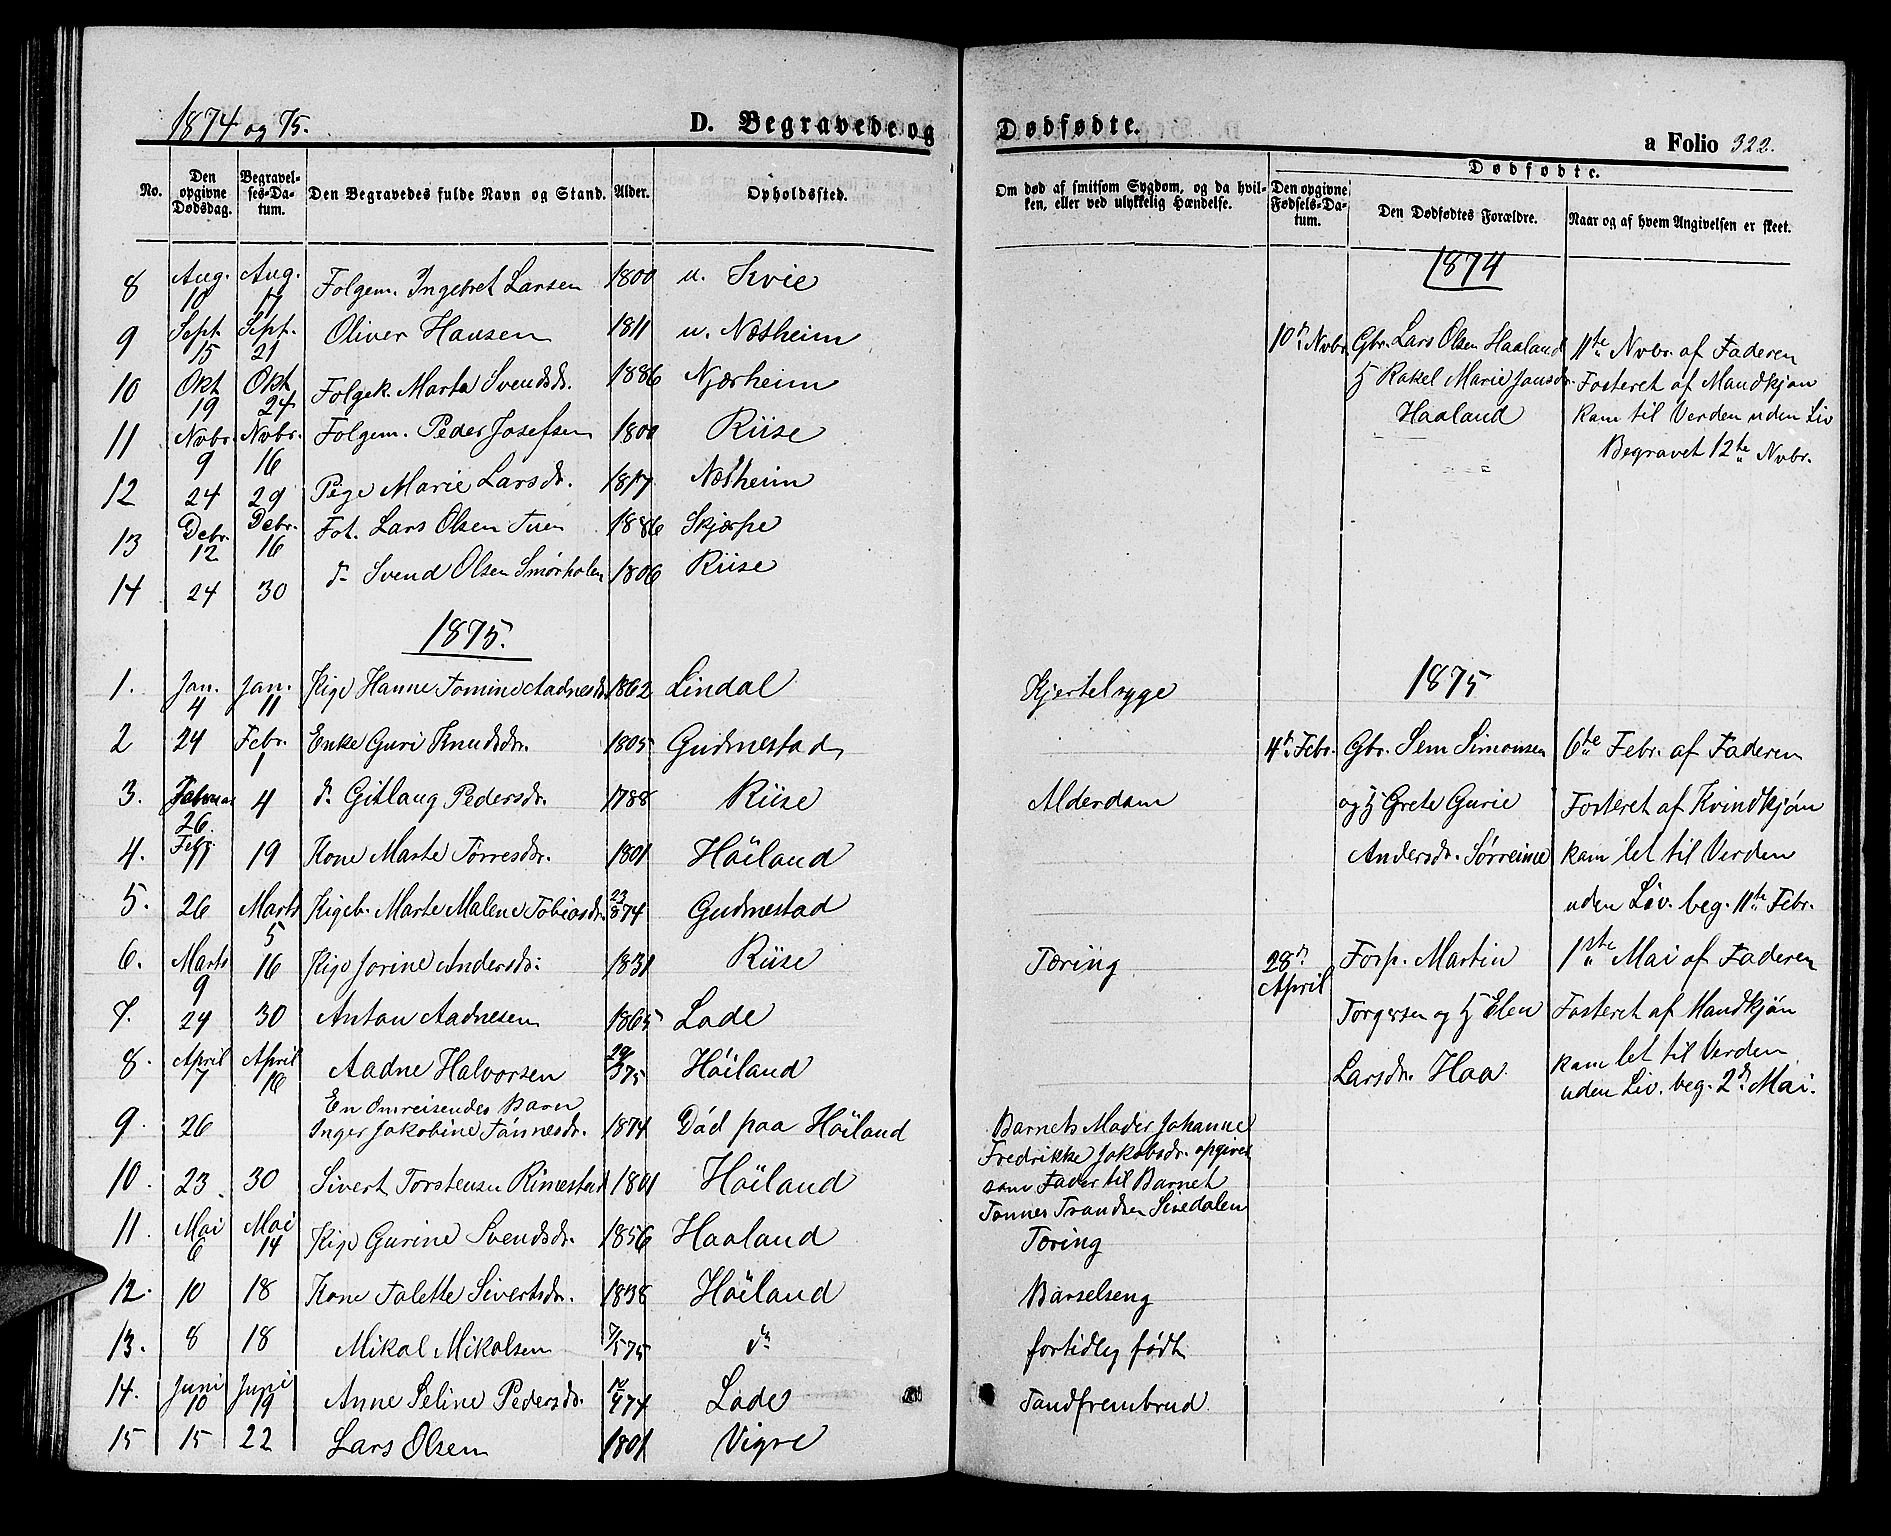 1874 og 75.
D. Begravede og
Dødfødte.
a Folio 322.
No.
Den opgivne Dødsdag.
Begravelses-Datum.
Den Begravedes fulde Navn og Stand.
Alder.
Opholdssted.
Om død af smitsom Sygdom, og da hvilken, eller ved ulykkelig Hændelse.
Dødfødte.
Den opgivne Fødsels-Datum.
Den Dødfødtes Forældre.
Naar og af hvem Angivelsen er skeet.
8 Aug. 10 Aug. 17 Folgem. Ingebret Larsen 1800 u. Kvie
9 Sept. 15 Sept. 21 Oliver Hansen 1811 u. Næsheim
10 Okt 19 Okt 24 Folgek. Marta Svendsdr. Njærheim
11 Nvbr. 9 Nvbr. 16 Folgem. Peder Josefsen 1800 Riise
12 24 29 Pige Marie Larsdr. 1817 Næsheim
13 Debr. 12 Debr. 16 Fot. Lars Olsen Tuen Skjærpe
14 24 30 do Svend Olsen Smørholen 1806 Riise
1875.
1. Jan. 4 Jan. 11 Pige Hanne Tomine Aadnesdr. 1862 Lindal Kjertelsyge
2 24 Febr. 1 Enke Guri Knudsdr. 1805 Gudmestad
3. 26. 4 do Gitlaug Pedersdr. 1788 Riise Alderdom
4. Febr. 11 19 Kone Marte Torresdr. 1801 Höiland
5. 26 Marts 5 Pigeb. Marte Malene Tobiasdr. 23/8 74 Gudmestad
6. Marts 9 16 Pige Jorine Andersdr. 1831 Riise Tæring
7. 24 30 Anton Aadnesen 1865 Lode
8. April 7 April 16 Aadne Halvorsen 29/3 75 Höiland
9. 26 En Omreisendes Barn
Inger Jakobine Tønnesdr. 1874 Död paa Höiland Barnets Moder Johanne
Fredrikke Jakobsdr. opgivet
som Fader til Barnet
Tønnes Trondsen Sivedalen
10. 23 30 Sivert Torstensen Rimestad 1801 Höiland
11. Mai 6 Mai 14 Pige Gurine Svendsdr. 1856 Haaland Tæring
12. 10 18 Kone Talette Sivertsdr. 1838 Höiland Barselseng
13. 8 18 Mikal Mikalsen 7/5 75 do fortidlig født
14. Juni 10 Juni 19 Anne Seline Pedersdr. Lode Tandfrembrud
15 15 22 Lars Olsen 1801 Vigre
1874
10de Nvbr. Gbr. Lars Olsen Haaland
H Rakel Marie Jansdr.
Haaland
11te Nvbr. af Faderen
Fosteret af Mandkjøn
kom til Verden uden Liv
Begravet 12te Nvbr.
1875
4de Febr. Gbr. Sem Simonsen
og H Grete Gurie
Andersdr. Sørreime
6te Febr. af Faderen
Fosteret af Kvindkjøn
kom let til Verden
uden Liv. beg. 11te Febr.
28de April Forp. Martin
Torgersen og H Elen
Larsdr. Haa
1ste Mai af Faderen
Fosteret af Mandkjøn
kom let til Verden
uden Liv. beg. 2de Mai.